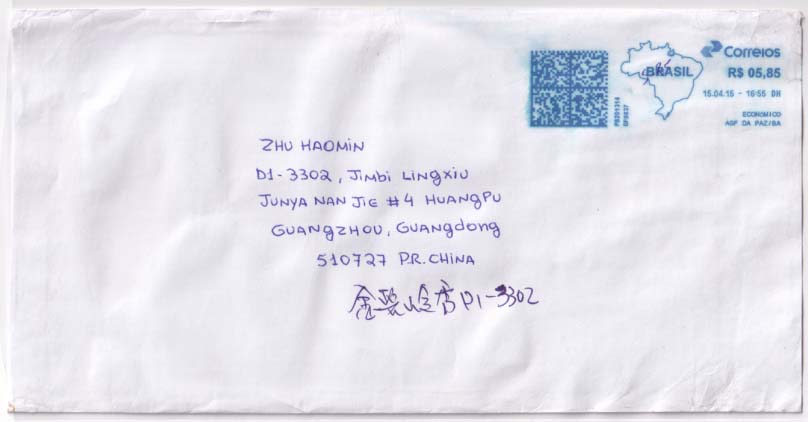 Correios
BRASIL
R$ 05,85
15.04.15 - 16:55 DH
ECONOMICO
AGF DA PAZ/BA
ZHU HAOMIN
D1-3302, JIMBI LINGXIU
JUNYA NAN JIE #4 HUANGPU
GUANGZHOU, GUANGDONG
510727 P.R. CHINA
金碧领秀 D1-3302